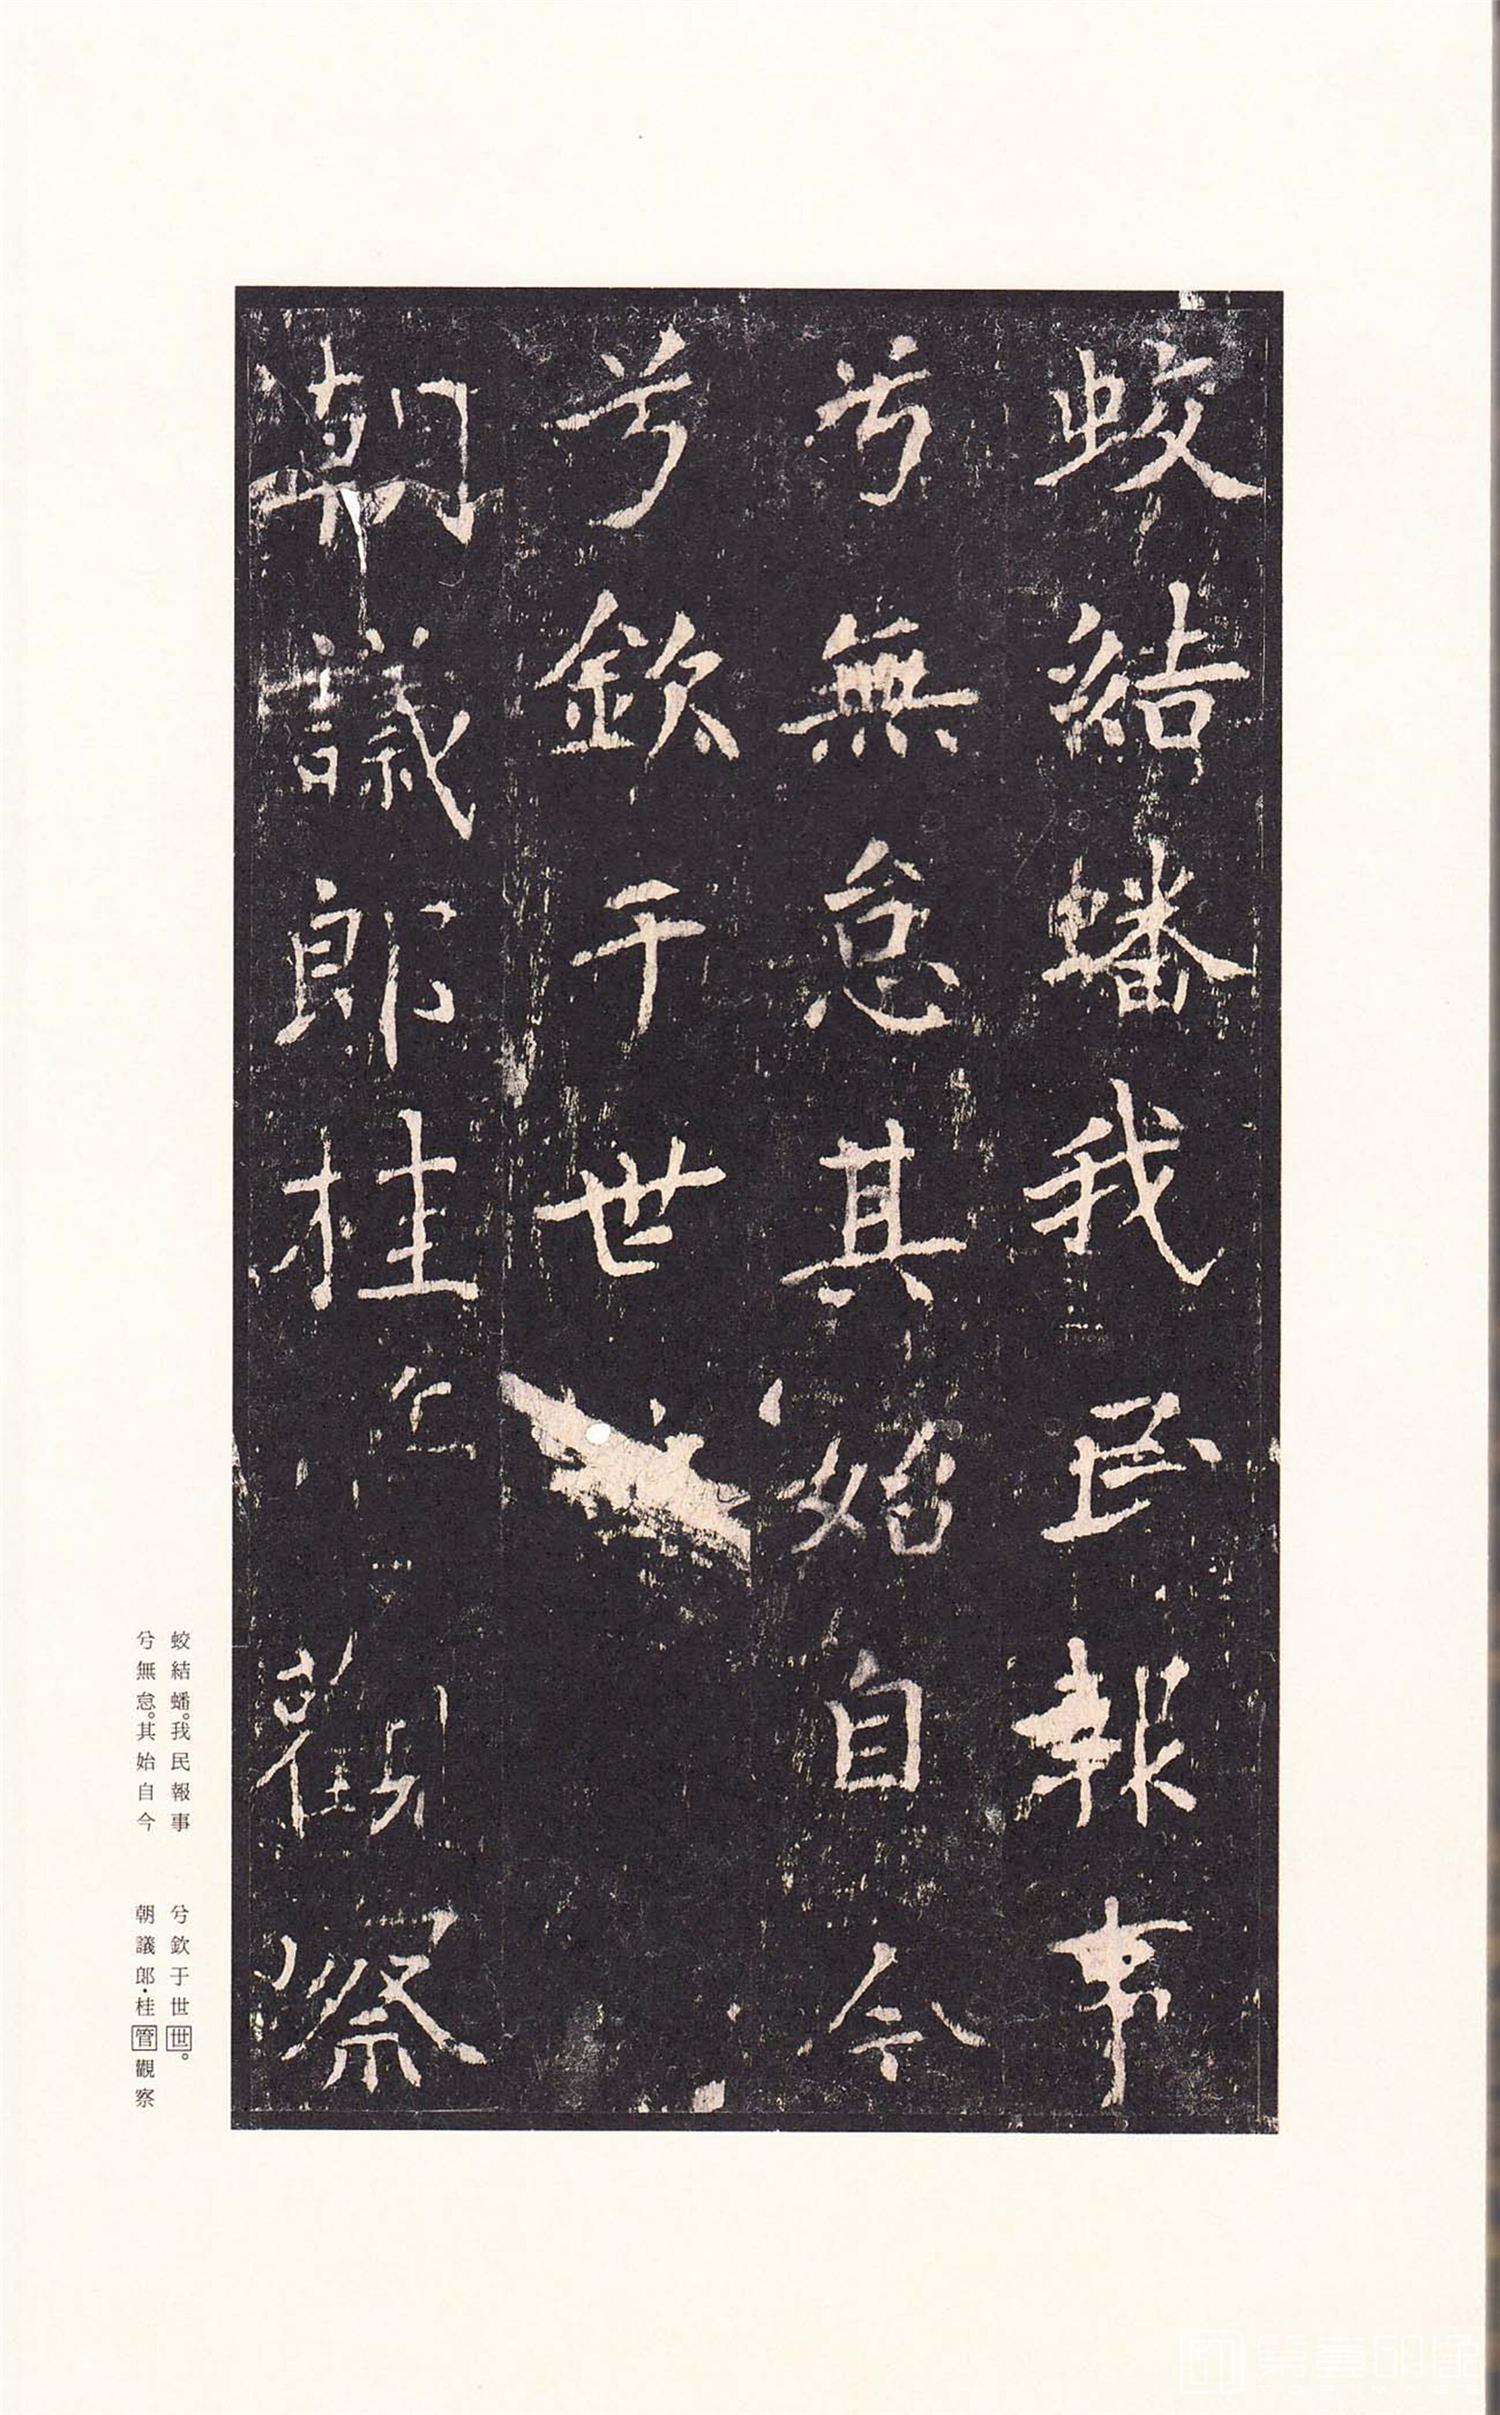 蛟結蟠我民報事
兮無怠其始自今
兮欽于世
朝議郎桂管觀察
蛟結蟠。我民報事
兮無怠。其始自今
兮欽于世世。
朝議郎·桂管觀察